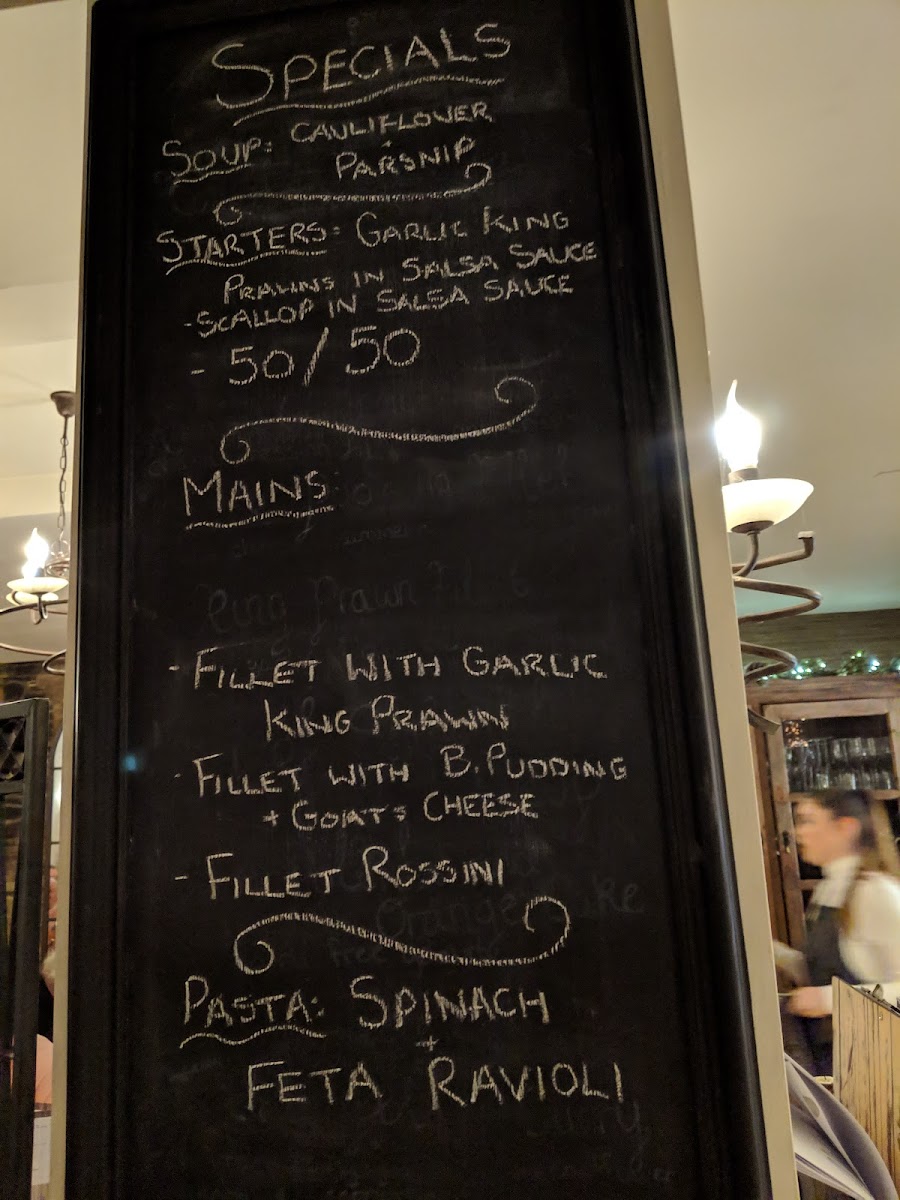 SPECIALS
SOUP: CAULIFLOWER
+
PARSNIP
STARTERS: GARLIC KING
PRAWNS IN SALSA SAUCE
- SCALLOP IN SALSA SAUCE
- 50/50
MAINS:
King Prawn
- FILLET WITH GARLIC
KING PRAWN
- FILLET WITH B. PUDDING
+ GOATS CHEESE
- FILLET ROSSINI
Orange Cake
PASTA: SPINACH
+
FETA RAVIOLI